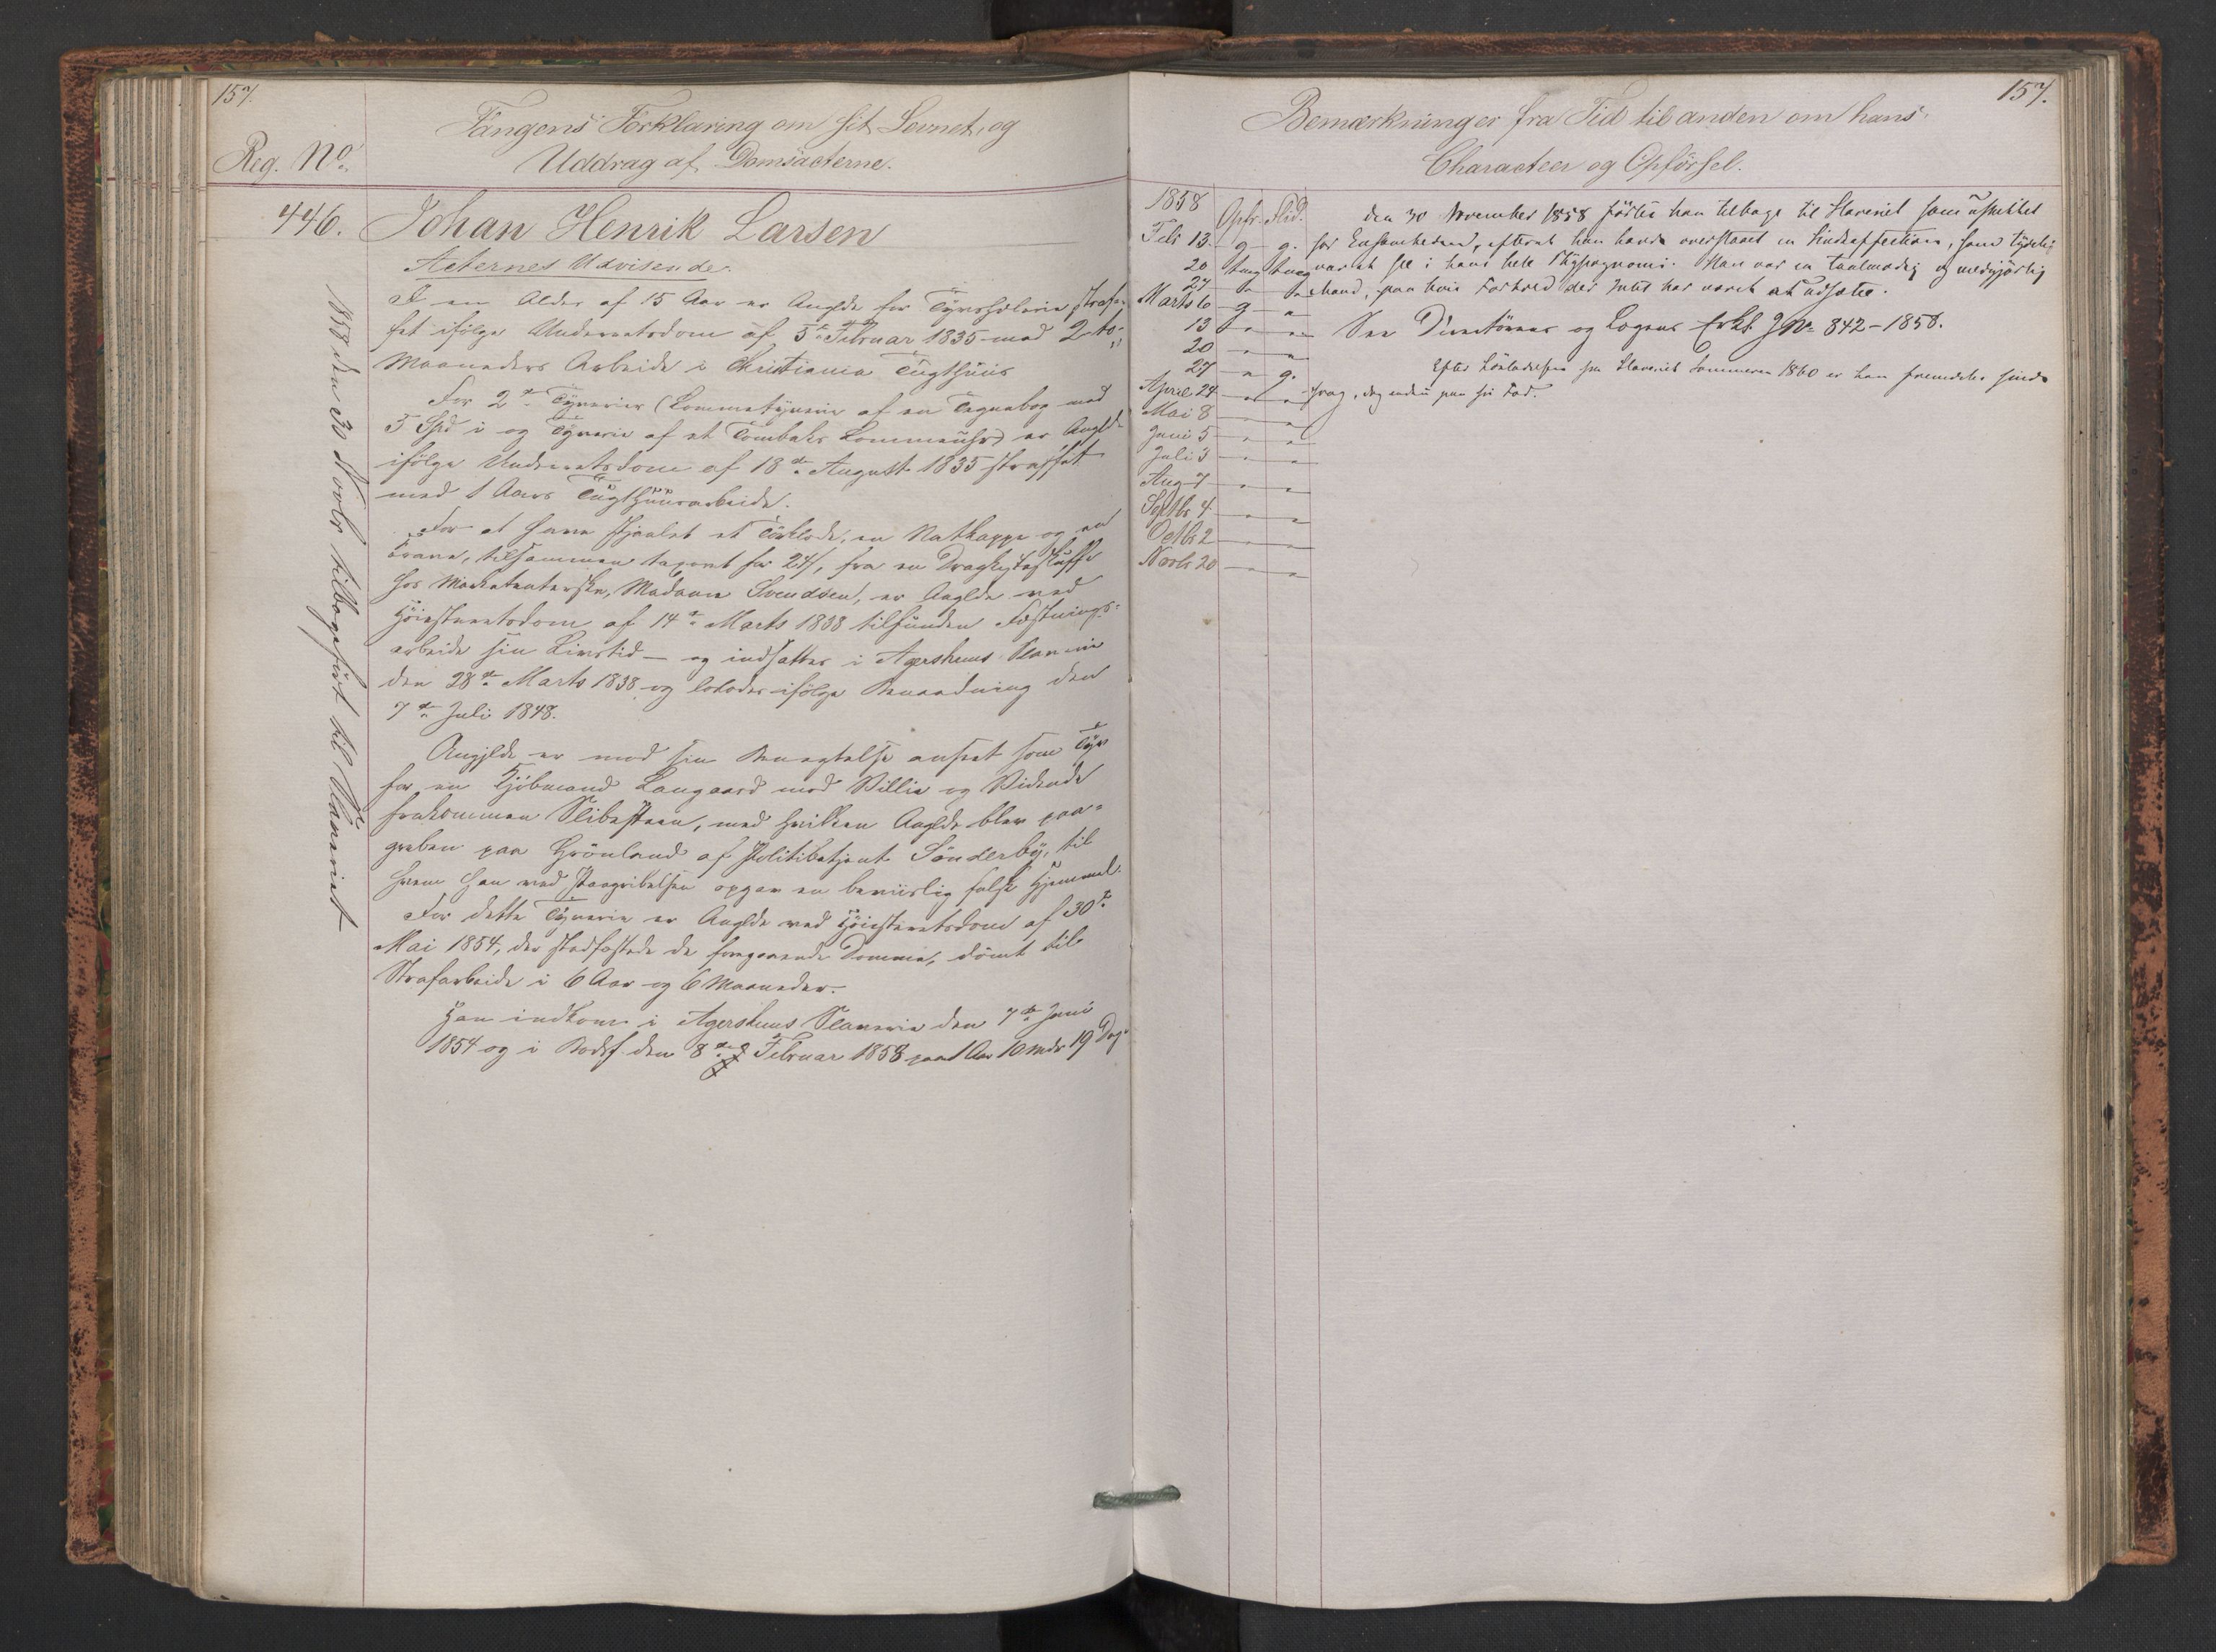 157.
Fangens Forklaring om sit Levnet, og
Reg. No.
Uddrag af Domsacterne.
446. Johan Henrik Larsen
Acternes Udvisende.
I en Alder af 15 Aar er Anglde for Tyvshæleri straf-
fet ifølge Underretsdom af 5te Februar 1835 med 2 to
Maaneders Arbeide i Christiania Tugthuus
For 2de Tyverier (Lommetyveri af en Tegnebog med
5 Spd i og Tyveri af et Tombaks Lommeuhr) er Anglde
ifølge Underretsdom af 18de August 1835 straffet
med 1 Aars Tugthuusarbeide.
For at have stjaalet et Tørklæde, en Natkappe og en
, tilsammen taxeret for 24 s, fra en Dragkisteskuffe
hos Marketenterske, Madame Svendsen, er Anglde ved
Høiesteretsdom af 14de Marts 1838 tilfunden Fæstnings-
arbeide sin Livstid – og indsattes i Agershuus Slaveri
den 28de Marts 1838 og løslodes ifølge Benaadning den
7de Juli 1848.
Angjelde er mod sin Benægtelse anseet som Tyv
for en Kjøbmand Langaard mod Villie og Vidende
frakommen Slibesteen, med hvilken Anglde blev paa-
greben paa Grönland af Politibetjent Sönderby, til
hvem han ved Paagribelsen opgav en beviislig falsk Hjemmel.
For dette Tyveri er Anglde ved Høiesteretsdom af 30te
Mai 1854, der stadfæstede de foregaaende Domme, dömt til
Strafarbeide i 6 Aar og 6 Maaneder.
Han indkom i Agershuus Slaveri den 7de Juni
1854 og i Bodsf. den 8de Februar 1858 paa 1 Aar 10 Mdr 19 Dag
1858 den 30 Novbr tilbageført til Slaveriet
157.
Bemærkninger fra Tid til anden om hans
Characteer og Opførsel.
1858 Opfr. Flid.
Feb 13. g g.
20 tmg tmg
27 " "
Marts 6 g "
13 " "
20 " "
27 " g.
April 24 " "
Mai 8 " "
Juni 5 " "
Juli 3 " "
Aug 7 " "
Septbr 4 " "
Octbr 2 " "
Novbr 20 " "
Den 30 November 1858 førtes han tilbage til Slaveriet som uskikket
for Ensomheden, efterat han havde overstaaet en Sindsaffection, som tydelig
var at see i hans hele Physiognomi. Han var en taalmodig og medgjørlig
Mand, paa hvis Forhold der Intet har været at udsætte.
See Directörens og Lægens Erkl. J No 842-1858.
Efter Løsladelsen fra Slaveriet Sommeren 1860 er han fremdeles sinds-
svag, dog endnu paa fri Fod.